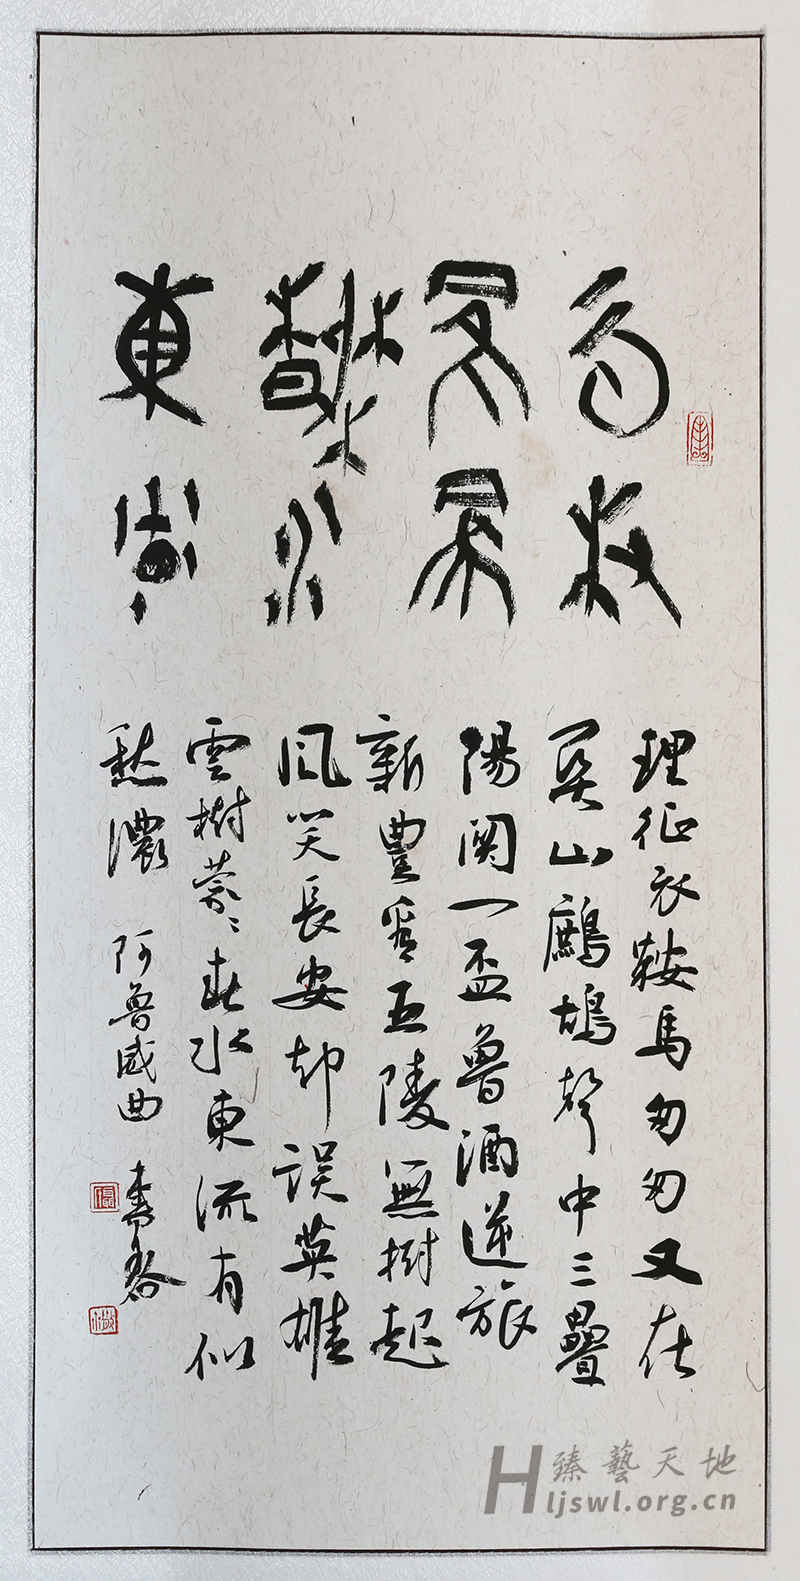 東
理征衣鞍馬匆匆又在
關山鷓鴣聲中三疊
陽關一盃魯酒逆旅
新豐看五陵無樹起
風笑長安却誤英雄
雲樹蒙〻春水東流有似
愁濃 阿魯威曲
臻藝天地
Hljswl.org.cn